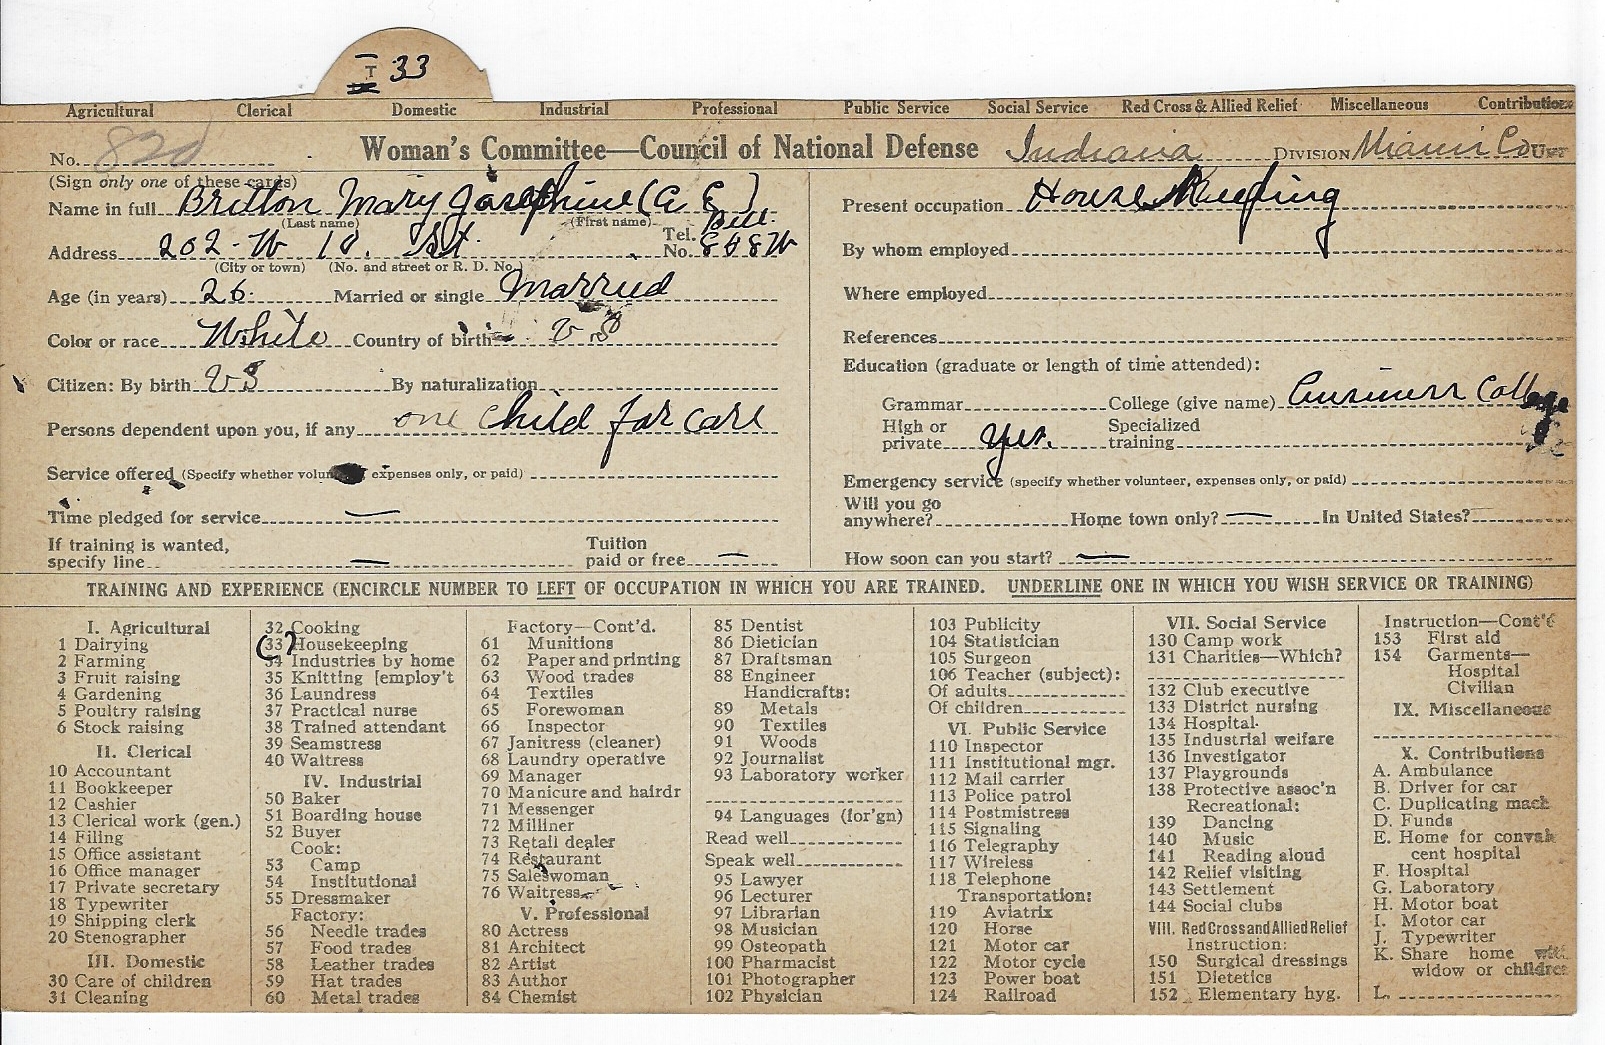 T 33
Agricultural Clerical Domestic Industrial Professional Public Service Social Service Red Cross & Allied Relief Miscellaneous Contributions
No. 820 Woman's Committee—Council of National Defense Indiana DIVISION Miami Co UNIT
(Sign only one of these cards)
Name in full Britton Mary Josephine (C E)
(Last name) (First name)
Address 202 - W 10. St. Tel. No. Bell 868W
(City or town) (No. and street or R. D. No.)
Age (in years) 26. Married or single Married
Color or race White Country of birth U S
Citizen: By birth U S By naturalization
Persons dependent upon you, if any one child for care
Service offered (Specify whether volun expenses only, or paid)
Time pledged for service —
If training is wanted, specify line — Tuition paid or free —
Present occupation House Keeping
By whom employed
Where employed
References
Education (graduate or length of time attended):
Grammar College (give name) Business College
High or private yes. Specialized training
Emergency service (specify whether volunteer, expenses only, or paid)
Will you go anywhere? Home town only? — In United States?
How soon can you start? —
TRAINING AND EXPERIENCE (ENCIRCLE NUMBER TO LEFT OF OCCUPATION IN WHICH YOU ARE TRAINED. UNDERLINE ONE IN WHICH YOU WISH SERVICE OR TRAINING)
I. Agricultural
1 Dairying
2 Farming
3 Fruit raising
4 Gardening
5 Poultry raising
6 Stock raising
II. Clerical
10 Accountant
11 Bookkeeper
12 Cashier
13 Clerical work (gen.)
14 Filing
15 Office assistant
16 Office manager
17 Private secretary
18 Typewriter
19 Shipping clerk
20 Stenographer
III. Domestic
30 Care of children
31 Cleaning
32 Cooking
33 Housekeeping
34 Industries by home
35 Knitting [employ't
36 Laundress
37 Practical nurse
38 Trained attendant
39 Seamstress
40 Waitress
IV. Industrial
50 Baker
51 Boarding house
52 Buyer
Cook:
53 Camp
54 Institutional
55 Dressmaker
Factory:
56 Needle trades
57 Food trades
58 Leather trades
59 Hat trades
60 Metal trades
Factory—Cont'd.
61 Munitions
62 Paper and printing
63 Wood trades
64 Textiles
65 Forewoman
66 Inspector
67 Janitress (cleaner)
68 Laundry operative
69 Manager
70 Manicure and hairdr
71 Messenger
72 Milliner
73 Retail dealer
74 Restaurant
75 Saleswoman
76 Waitress
V. Professional
80 Actress
81 Architect
82 Artist
83 Author
84 Chemist
85 Dentist
86 Dietician
87 Draftsman
88 Engineer
Handicrafts:
89 Metals
90 Textiles
91 Woods
92 Journalist
93 Laboratory worker
94 Languages (for'gn)
Read well
Speak well
95 Lawyer
96 Lecturer
97 Librarian
98 Musician
99 Osteopath
100 Pharmacist
101 Photographer
102 Physician
103 Publicity
104 Statistician
105 Surgeon
106 Teacher (subject):
Of adults
Of children
VI. Public Service
110 Inspector
111 Institutional mgr.
112 Mail carrier
113 Police patrol
114 Postmistress
115 Signaling
116 Telegraphy
117 Wireless
118 Telephone
Transportation:
119 Aviatrix
120 Horse
121 Motor car
122 Motor cycle
123 Power boat
124 Railroad
VII. Social Service
130 Camp work
131 Charities—Which?
132 Club executive
133 District nursing
134 Hospital
135 Industrial welfare
136 Investigator
137 Playgrounds
138 Protective assoc'n
Recreational:
139 Dancing
140 Music
141 Reading aloud
142 Relief visiting
143 Settlement
144 Social clubs
VIII. Red Cross and Allied Relief
Instruction:
150 Surgical dressings
151 Dietetics
152 Elementary hyg.
Instruction—Cont'd
153 First aid
154 Garments—
Hospital
Civilian
IX. Miscellaneous
X. Contributions
A. Ambulance
B. Driver for car
C. Duplicating mach
D. Funds
E. Home for convales
cent hospital
F. Hospital
G. Laboratory
H. Motor boat
I. Motor car
J. Typewriter
K. Share home with
widow or children
L.